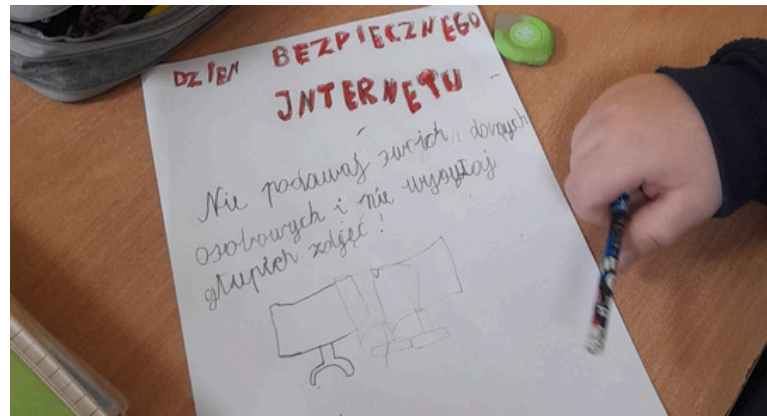 DZIEŃ BEZPIECZNEGO
INTERNETU
Nie podawaj swoich danych
osobowych i nie wysyłaj
głupich zdjęć!